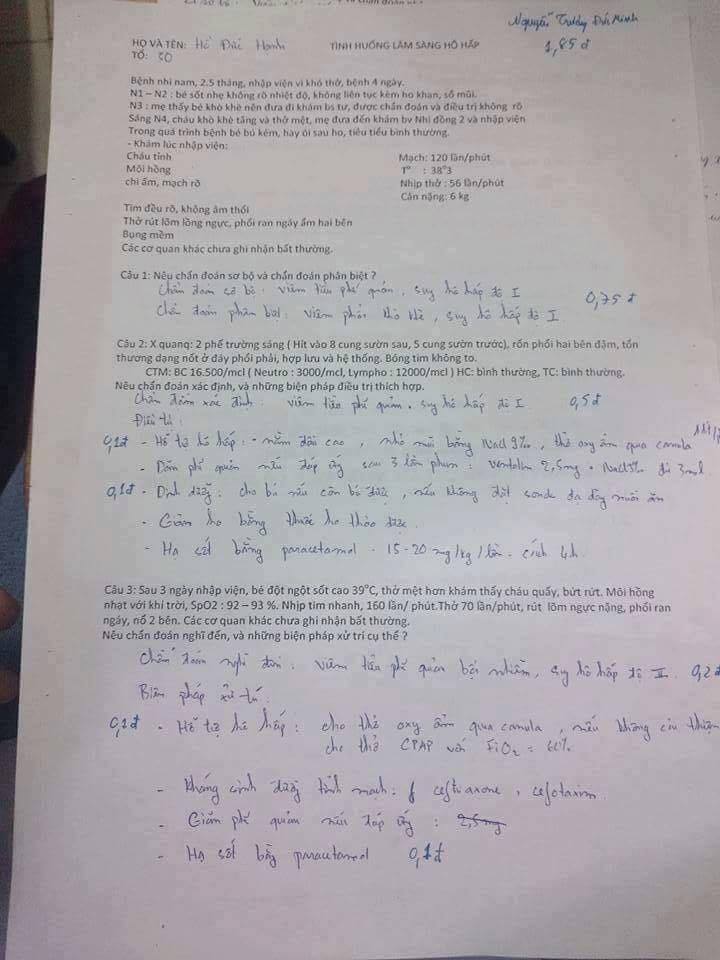 Nguyễn Trương Đức Minh
HỌ VÀ TÊN: Hồ Đức Hạnh TÌNH HUỐNG LÂM SÀNG HÔ HẤP 1,85 đ
TỔ: 20
Bệnh nhi nam, 2.5 tháng, nhập viện vì khó thở, bệnh 4 ngày.
N1 – N2 : bé sốt nhẹ không rõ nhiệt độ, không liên tục kèm ho khan, sổ mũi.
N3 : mẹ thấy bé khò khè nên đưa đi khám bs tư, được chẩn đoán và điều trị không rõ
Sáng N4, cháu khò khè tăng và thở mệt, mẹ đưa đến khám bv Nhi đồng 2 và nhập viện
Trong quá trình bệnh bé bú kém, hay ói sau ho, tiêu tiểu bình thường.
- Khám lúc nhập viện:
Cháu tỉnh Mạch: 120 lần/phút
Môi hồng T° : 38°3
chi ấm, mạch rõ Nhịp thở : 56 lần/phút
Cân nặng: 6 kg
Tim đều rõ, không âm thổi
Thở rút lõm lồng ngực, phổi ran ngáy ẩm hai bên
Bụng mềm
Các cơ quan khác chưa ghi nhận bất thường.
Câu 1: Nêu chẩn đoán sơ bộ và chẩn đoán phân biệt ?
Chẩn đoán sơ bộ: viêm tiểu phế quản, suy hô hấp độ I 0,75 đ
Chẩn đoán phân biệt: viêm phổi khò khè, suy hô hấp độ I
Câu 2: X quang: 2 phế trường sáng ( Hít vào 8 cung sườn sau, 5 cung sườn trước), rốn phổi hai bên đậm, tổn
thương dạng nốt ở đáy phổi phải, hợp lưu và hệ thống. Bóng tim không to.
CTM: BC 16.500/mcl ( Neutro : 3000/mcl, Lympho : 12000/mcl ) HC: bình thường, TC: bình thường.
Nêu chẩn đoán xác định, và những biện pháp điều trị thích hợp.
Chẩn đoán xác định: viêm tiểu phế quản. suy hô hấp độ I 0,5 đ
Điều trị:
0,1đ - Hỗ trợ hô hấp: - nằm đầu cao, nhỏ mũi bằng NaCl 9‰, thở oxy ẩm qua canula
- Dãn phế quản nếu đáp ứng sau 3 lần phun: Ventolin 2,5mg + NaCl 3% đủ 3ml
0,1đ - Dinh dưỡng: cho bú nếu còn bú được, nếu không đặt sonde dạ dày nuôi ăn
- Giảm ho bằng thuốc ho thảo dược.
- Hạ sốt bằng paracetamol - 15-20 mg/kg/lần - cách 4h.
Câu 3: Sau 3 ngày nhập viện, bé đột ngột sốt cao 39°C, thở mệt hơn khám thấy cháu quấy, bứt rứt. Môi hồng
nhạt với khí trời, SpO2 : 92 – 93 %. Nhịp tim nhanh, 160 lần/ phút.Thở 70 lần/phút, rút lõm ngực nặng, phổi ran
ngáy, nổ 2 bên. Các cơ quan khác chưa ghi nhận bất thường.
Nêu chẩn đoán nghĩ đến, và những biện pháp xử trí cụ thể ?
Chẩn đoán nghĩ đến: viêm tiểu phế quản bội nhiễm, suy hô hấp độ II 0,2đ
Biện pháp xử trí:
0,1đ - Hỗ trợ hô hấp: cho thở oxy ẩm qua canula, nếu không cải thiện
cho thở CPAP với FiO2 = 60%
- Kháng sinh đường tĩnh mạch: ceftriaxone, cefotaxim
- Giãn phế quản nếu đáp ứng: 2,5mg
- Hạ sốt bằng paracetamol 0,1đ